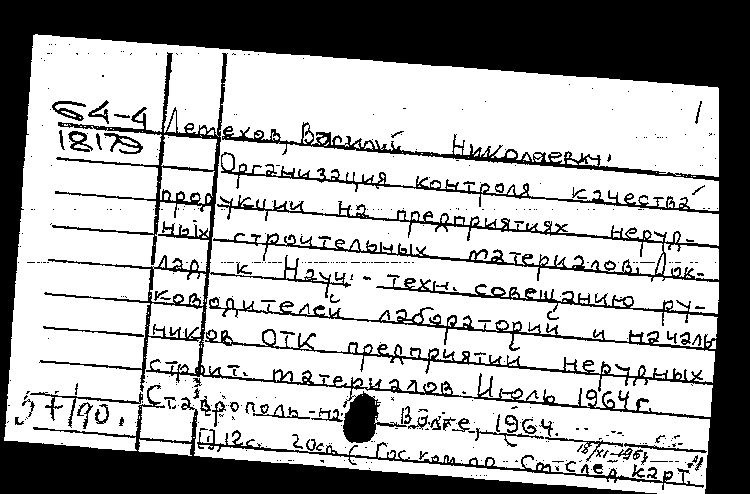 1
64-4
18179
Летехов, Василий Николаевич.
Организация контроля качества
продукции на предприятиях неруд-
ных строительных материалов. Док-
лад к Науч.-техн. совещанию ру-
ководителей лабораторий и началь
ников ОТК предприятий нерудных
строит. материалов. Июль 1964г.
Ставрополь-на Волге, 1964.
57/90.
[1], 12с. 20см (Гос. ком по
См. след. карт.